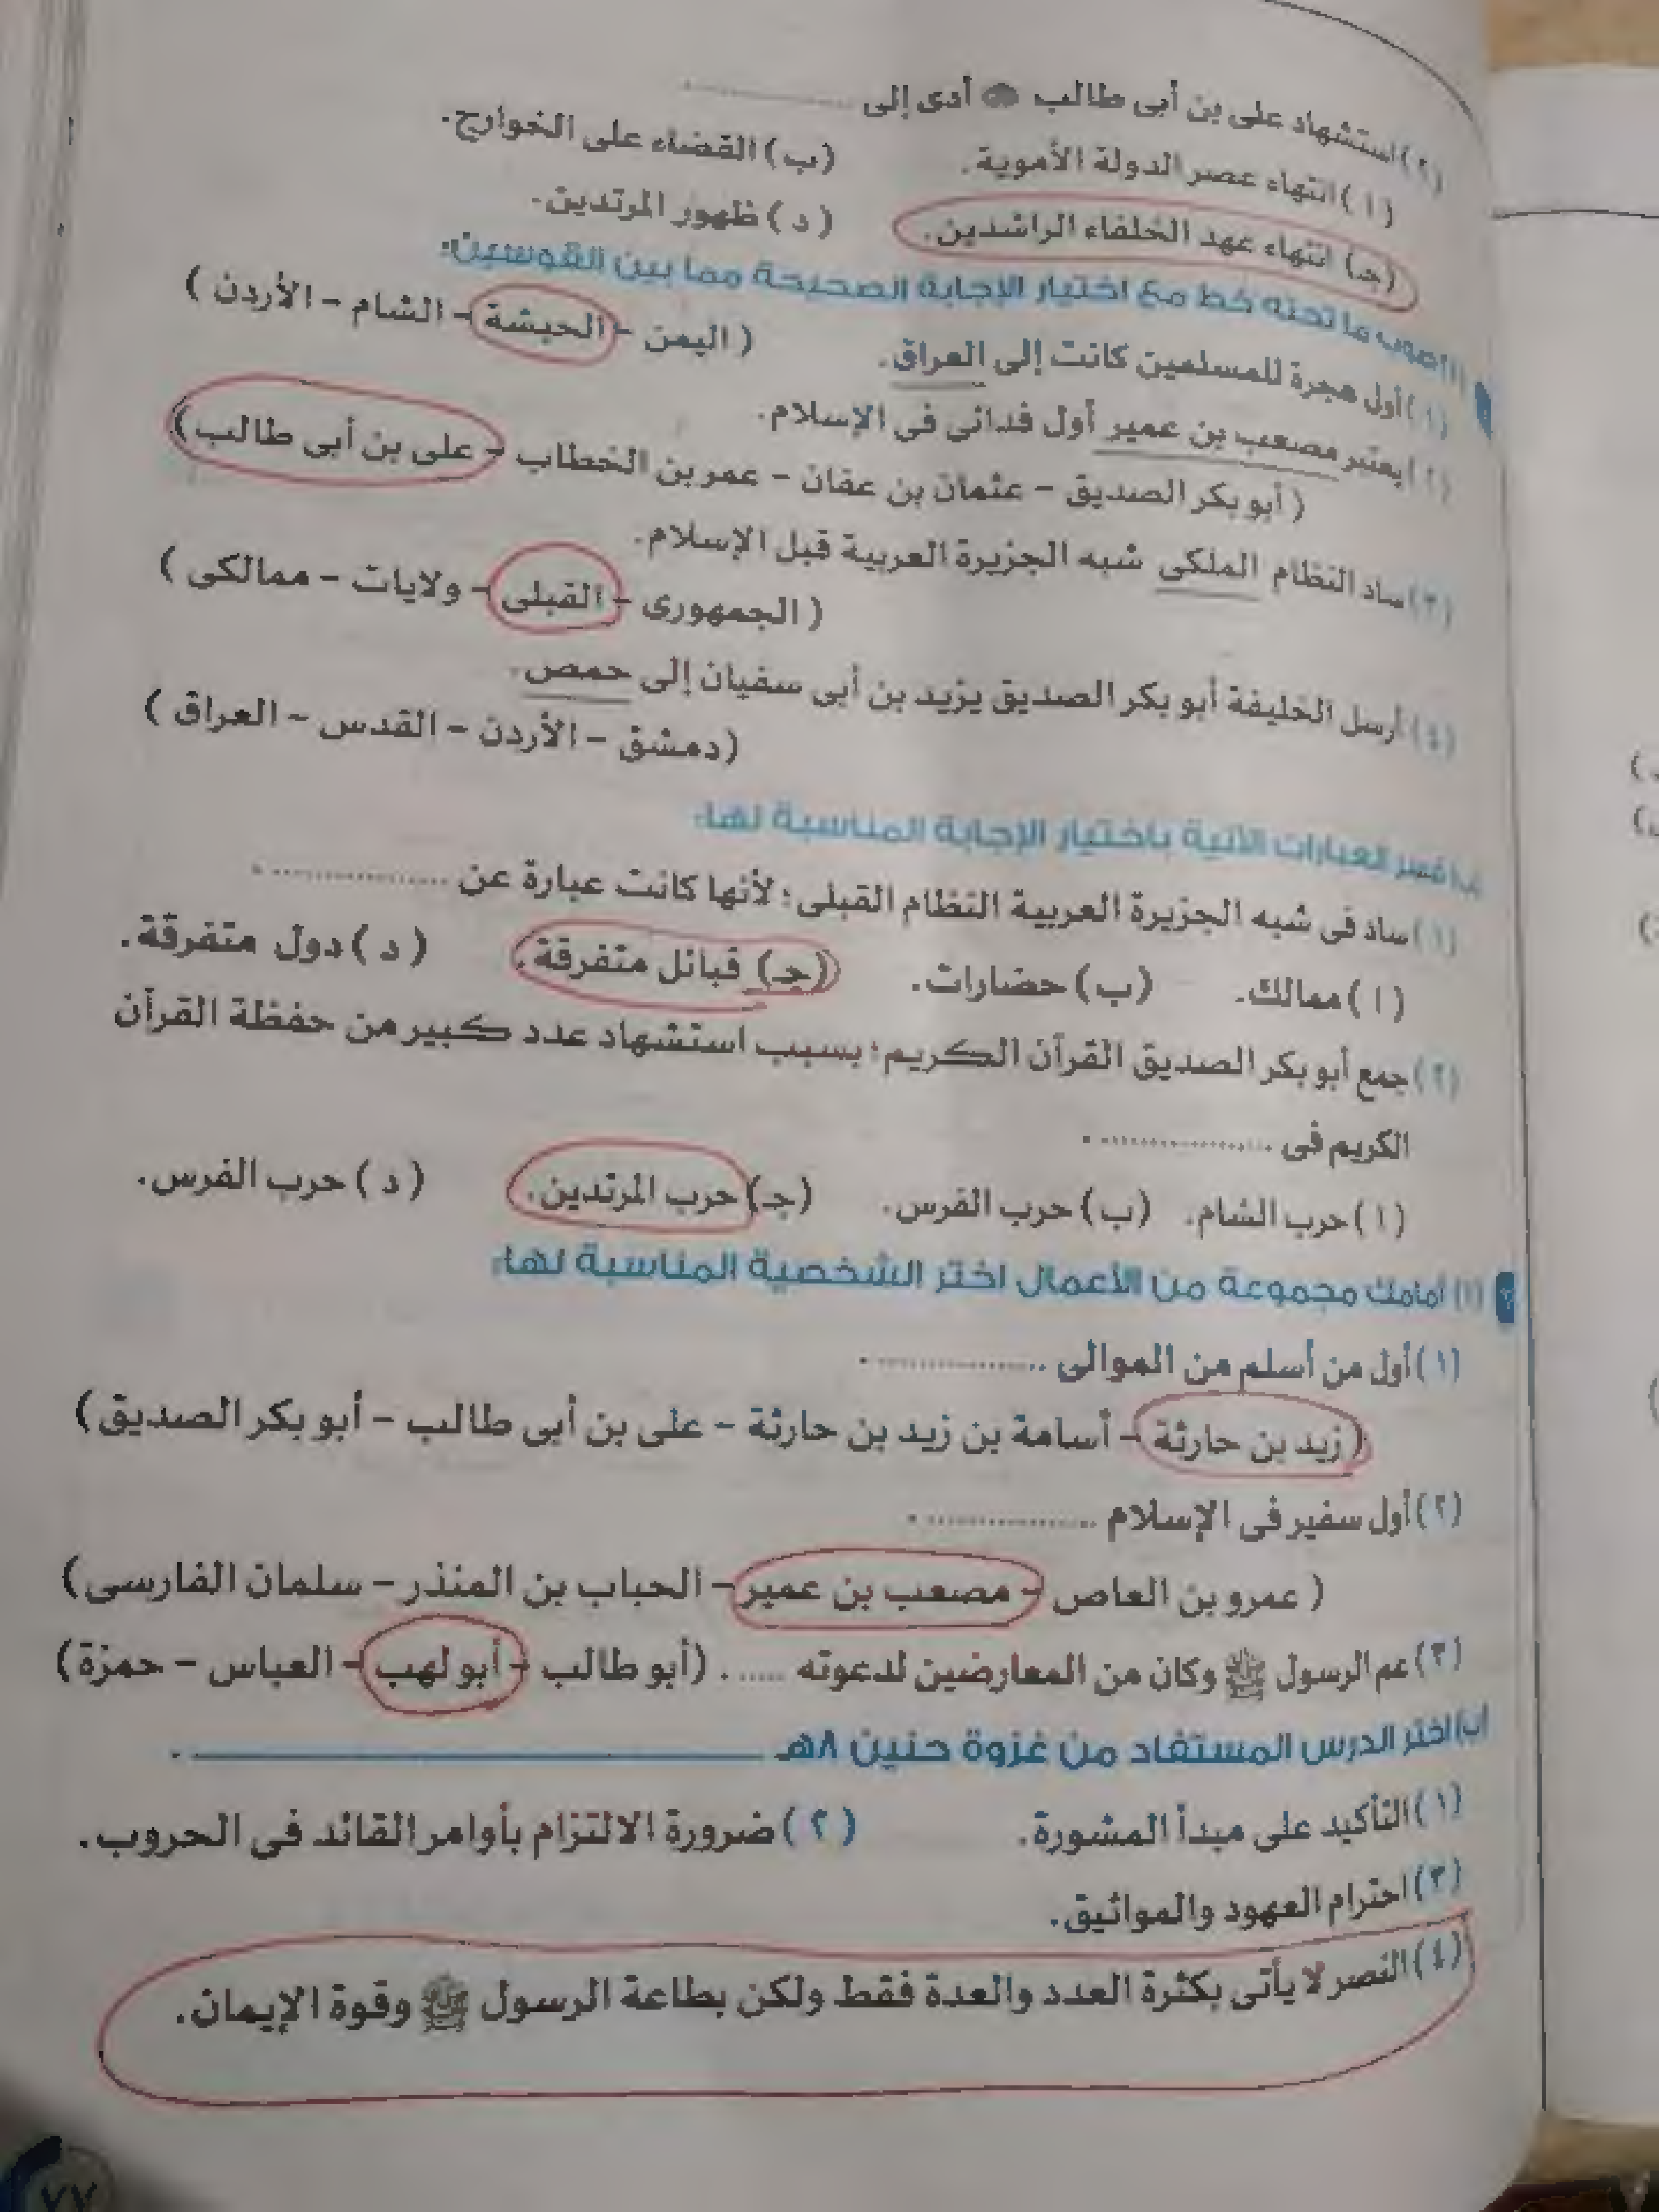 (٢) استشهاد على بن أبى طالب أدى إلى ..................
(١) انتهاء عصر الدولة الأموية. (ب) القضاء على الخوارج.
(جـ) انتهاء عهد الخلفاء الراشدين. (د) ظهور المرتدين.
(١) صوب ما تحته خط مع اختيار الإجابة الصحيحة مما بين القوسين:
(١) أول هجرة للمسلمين كانت إلى العراق. ( اليمن - الحبشة - الشام - الأردن )
(٢) يعتبر مصعب بن عمير أول فدائى فى الإسلام.
( أبو بكر الصديق - عثمان بن عفان - عمر بن الخطاب - على بن أبى طالب )
(٣) ساد النظام الملكى شبه الجزيرة العربية قبل الإسلام.
( الجمهورى - القبلى - ولايات - ممالكى )
(٤) أرسل الخليفة أبو بكر الصديق يزيد بن أبى سفيان إلى حمص.
(دمشق - الأردن - القدس - العراق )
(ب) فسر العبارات الآتية باختيار الإجابة المناسبة لها:
(١) ساد فى شبه الجزيرة العربية النظام القبلى؛ لأنها كانت عبارة عن .................. .
(١) ممالك. (ب) حضارات. (جـ) قبائل متفرقة. (د) دول متفرقة.
(٢) جمع أبو بكر الصديق القرآن الكريم؛ بسبب استشهاد عدد كبير من حفظة القرآن
الكريم فى .................. .
(١) حرب الشام. (ب) حرب الفرس. (جـ) حرب المرتدين. (د) حرب الفرس.
٣ (١) أمامك مجموعة من الأعمال اختر الشخصية المناسبة لها:
(١) أول من أسلم من الموالى .................. .
( زيد بن حارثة - أسامة بن زيد بن حارثة - على بن أبى طالب - أبو بكر الصديق )
(٢) أول سفير فى الإسلام .................. .
( عمرو بن العاص - مصعب بن عمير - الحباب بن المنذر - سلمان الفارسى )
(٣) عم الرسول ﷺ وكان من المعارضين لدعوته ...... . (أبو طالب - أبو لهب - العباس - حمزة )
(ب) اختر الدرس المستفاد من غزوة حنين ٨هـ ____________ .
(١) التأكيد على مبدأ المشورة. (٢) ضرورة الالتزام بأوامر القائد فى الحروب.
(٣) احترام العهود والمواثيق.
(٤) النصر لا يأتى بكثرة العدد والعدة فقط ولكن بطاعة الرسول ﷺ وقوة الإيمان.
٧٧